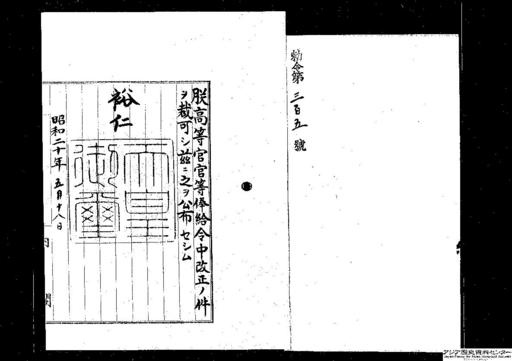 勅令第三百五號
朕高等官官等俸給令中改正ノ件
ヲ裁可シ茲ニ之ヲ公布セシム
裕仁
天皇
御璽
昭和二十年五月十八日
内閣
アジア歴史資料センター